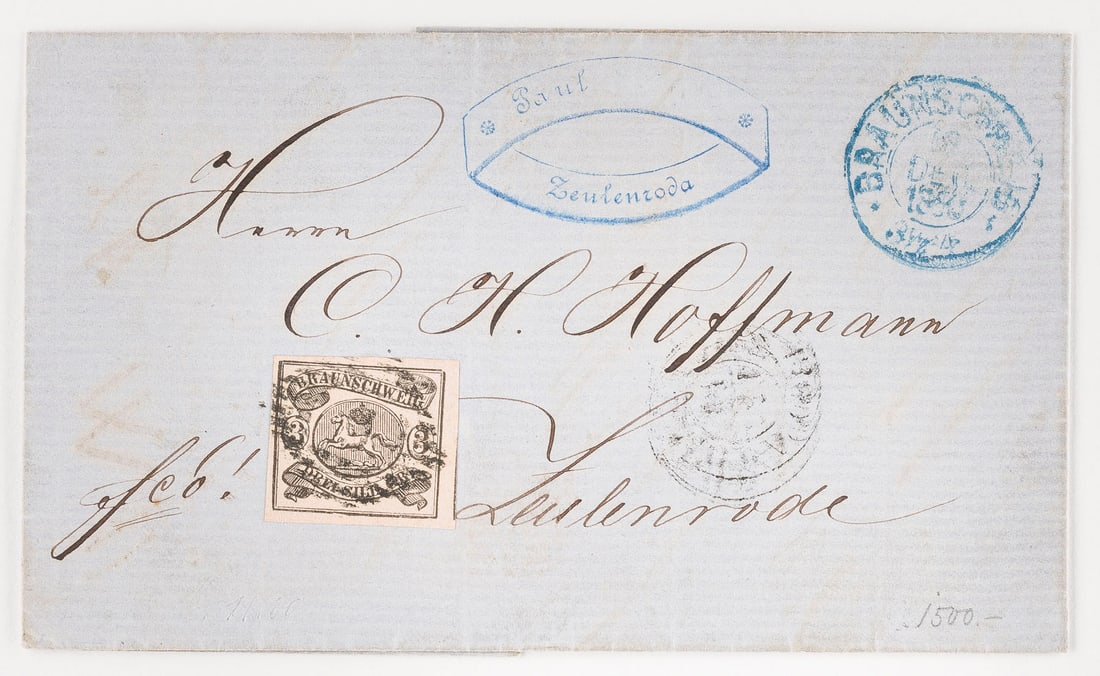 Paul
Zeulenroda
BRAUNSCHWEIG
Herrn
C. H. Hoffmann
BRAUNSCHWEIG
3 3
DREI SILB
fco!
Zeulenrode
1500.-